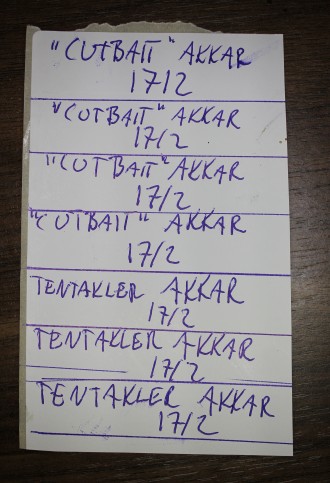 "CUTBAIT" AKKAR
17/2
"CUTBAIT" AKKAR
17/2
"CUTBAIT" AKKAR
17/2
"CUTBAIT" AKKAR
17/2
TENTAKLER AKKAR
17/2
TENTAKLER AKKAR
17/2
TENTAKLER AKKAR
17/2